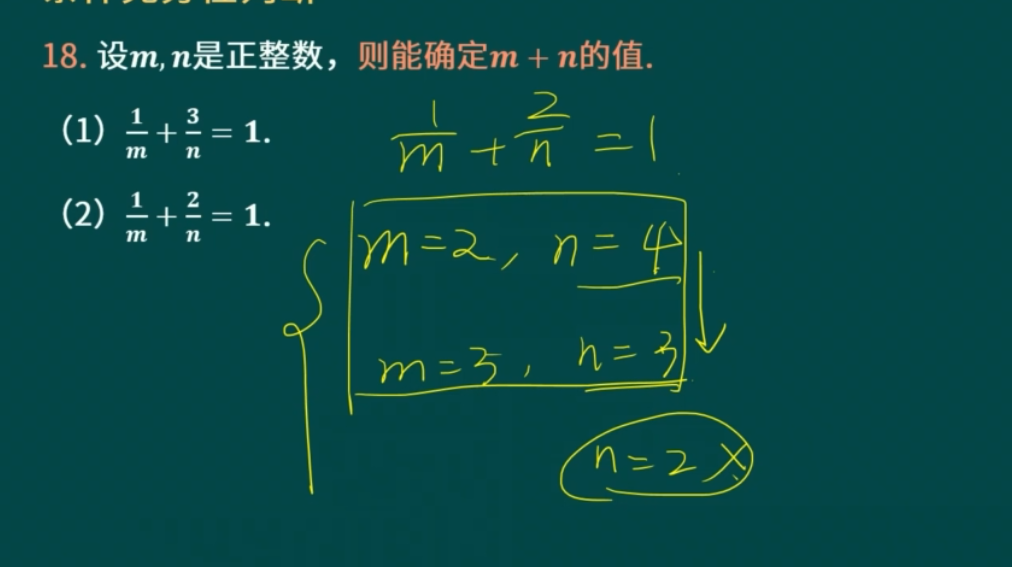 18. 设m, n是正整数，则能确定m + n的值.
（1）1/m + 3/n = 1.
1/m + 2/n = 1
（2）1/m + 2/n = 1.
m = 2 , n = 4
m = 3 , n = 3
n = 2 ×